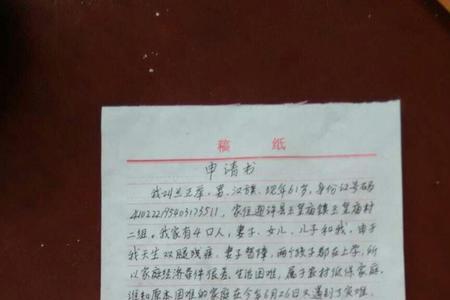 稿 纸
申请书
我叫兰卫举，男，汉族，现年61岁，身份证号码
410222195405175511，家住通许县玉皇庙镇玉皇庙村
二组，我家有4口人，妻子、女儿、儿子和我，由于
我天生双腿残疾，妻子智障，两个孩子都在上学，所
以家庭经济条件很差，生活困难，属于农村低保家庭。
谁知原本困难的家庭在今年6月26日又遇到了灾难，